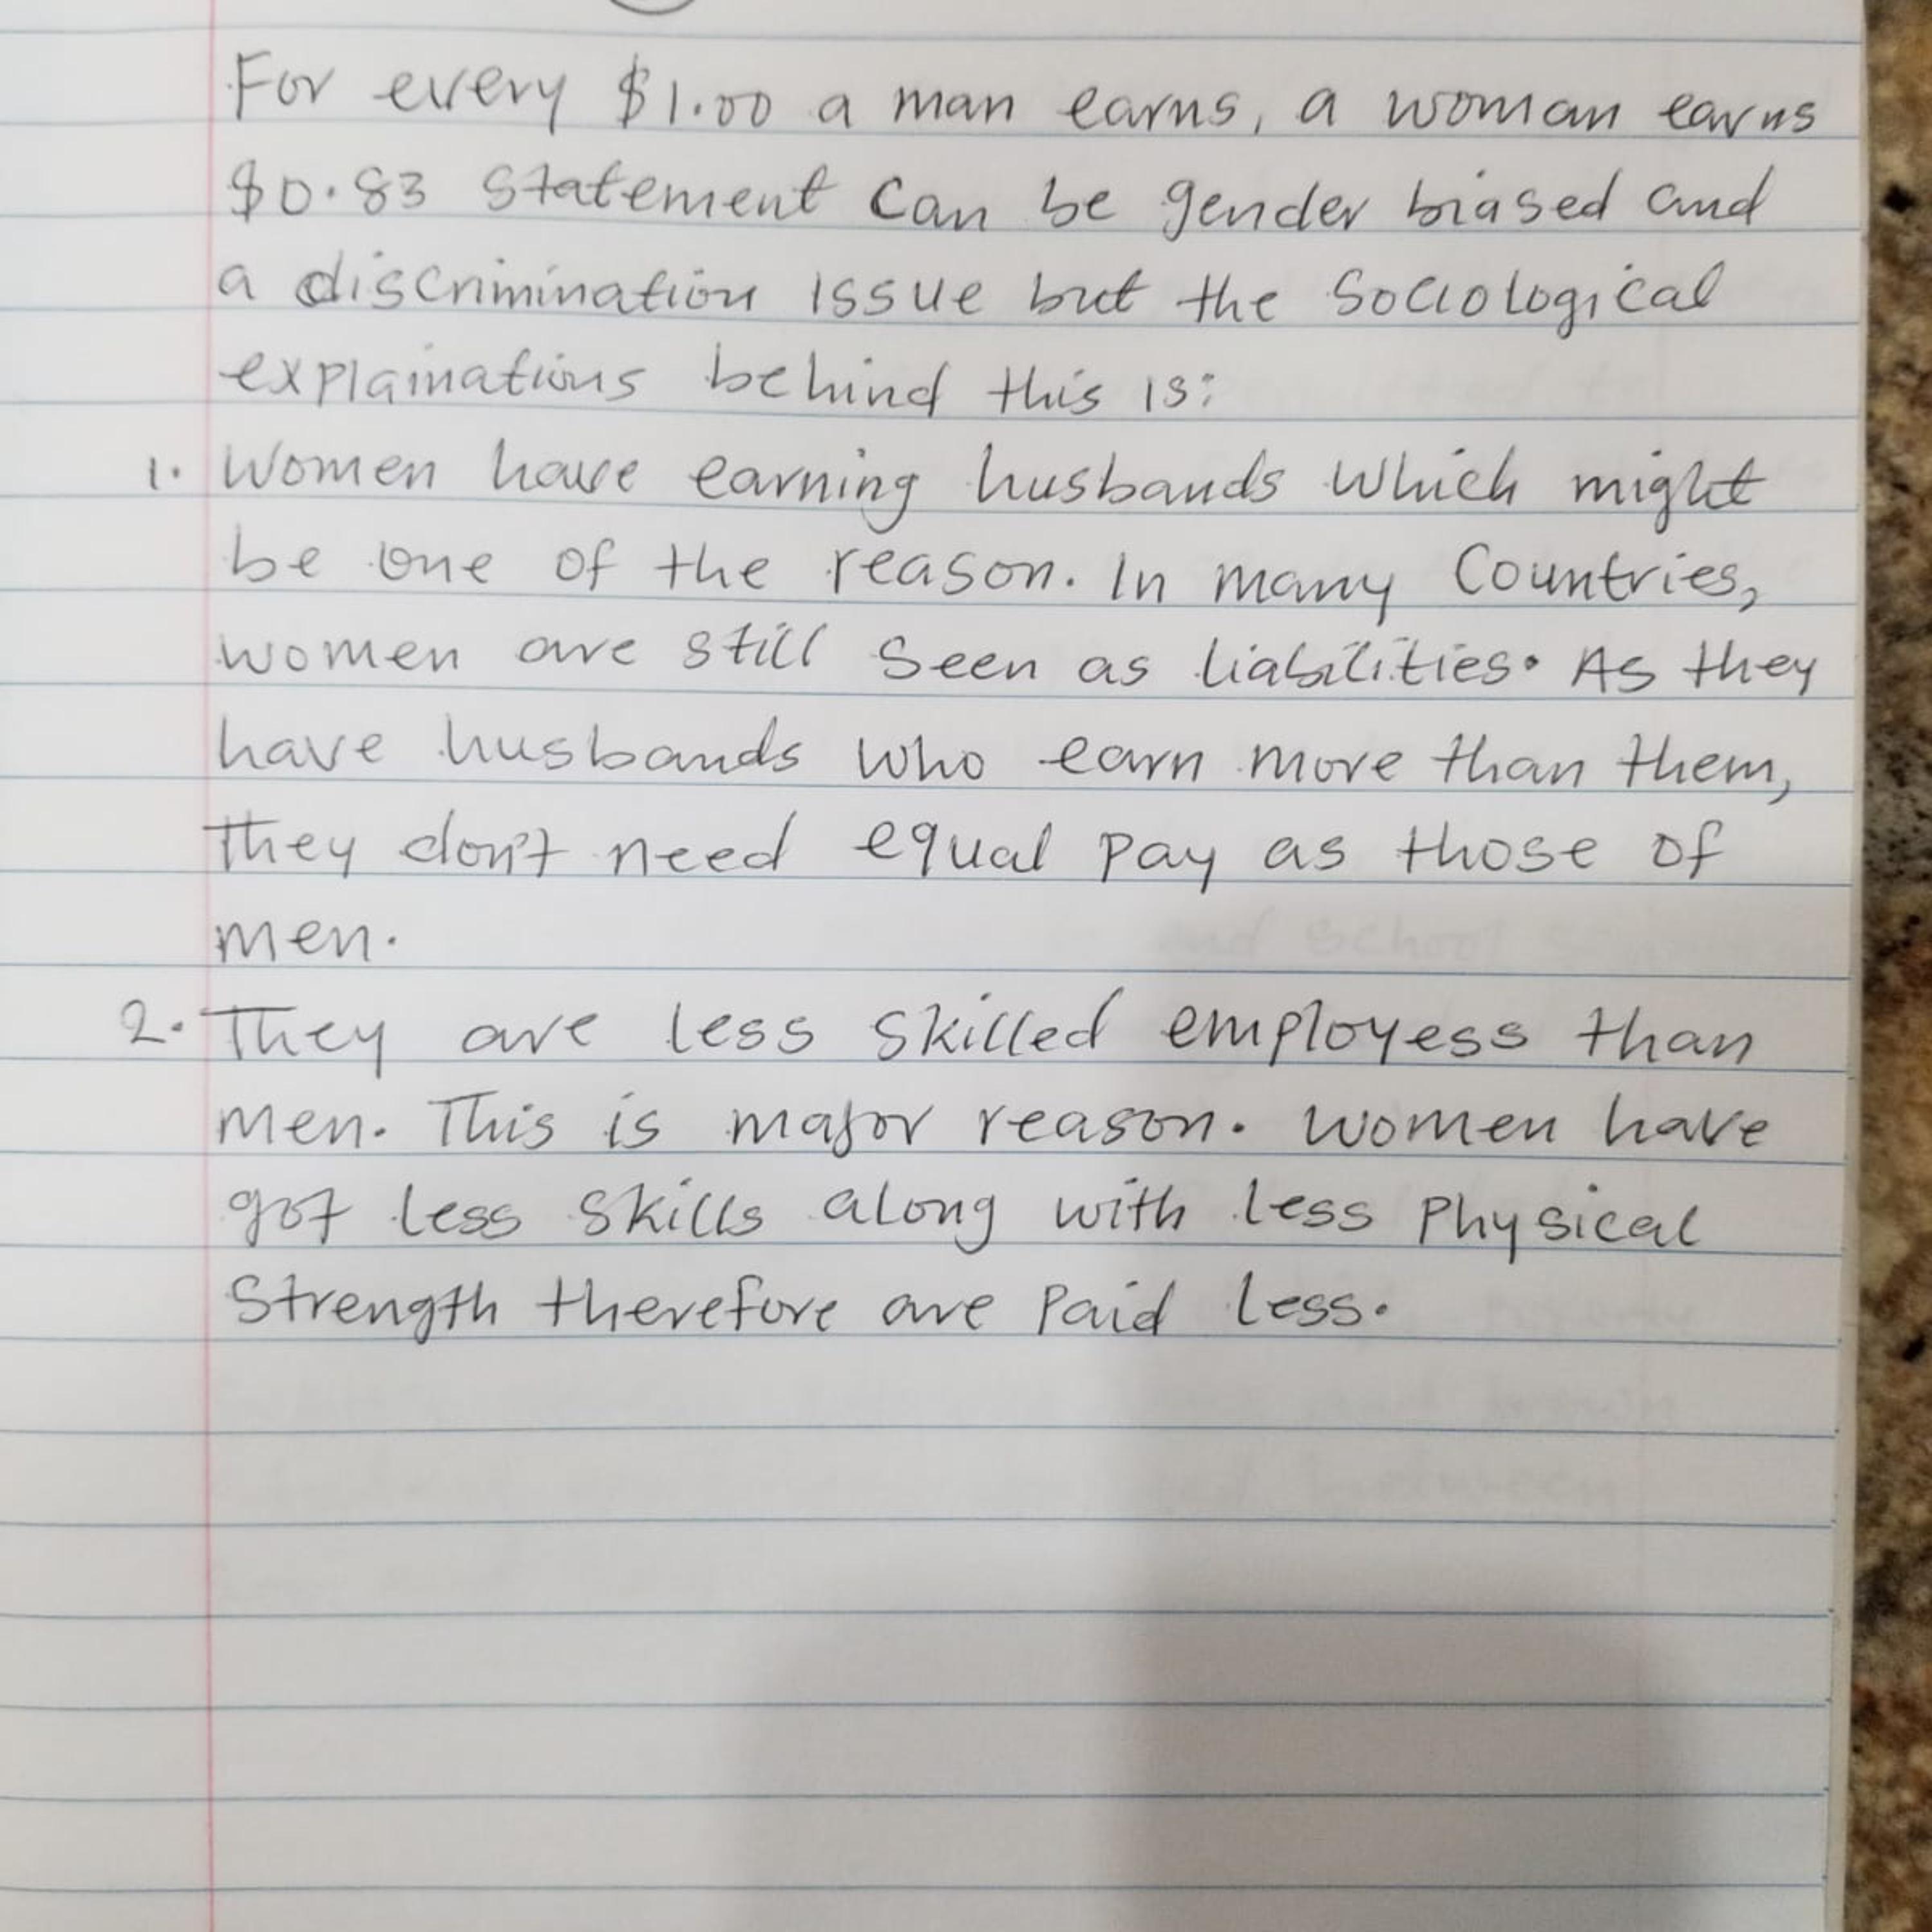 For every $1.00 a man earns, a woman earns
$0.83 statement can be gender biased and
a discrimination issue but the Sociological
explainations behind this is:
1. Women have earning husbands which might
be one of the reason. In many Countries,
women are still seen as liabilities. As they
have husbands who earn more than them,
they don't need equal pay as those of
men.
2. They are less skilled employess than
men. This is major reason. Women have
got less skills along with less Physical
Strength therefore are paid less.